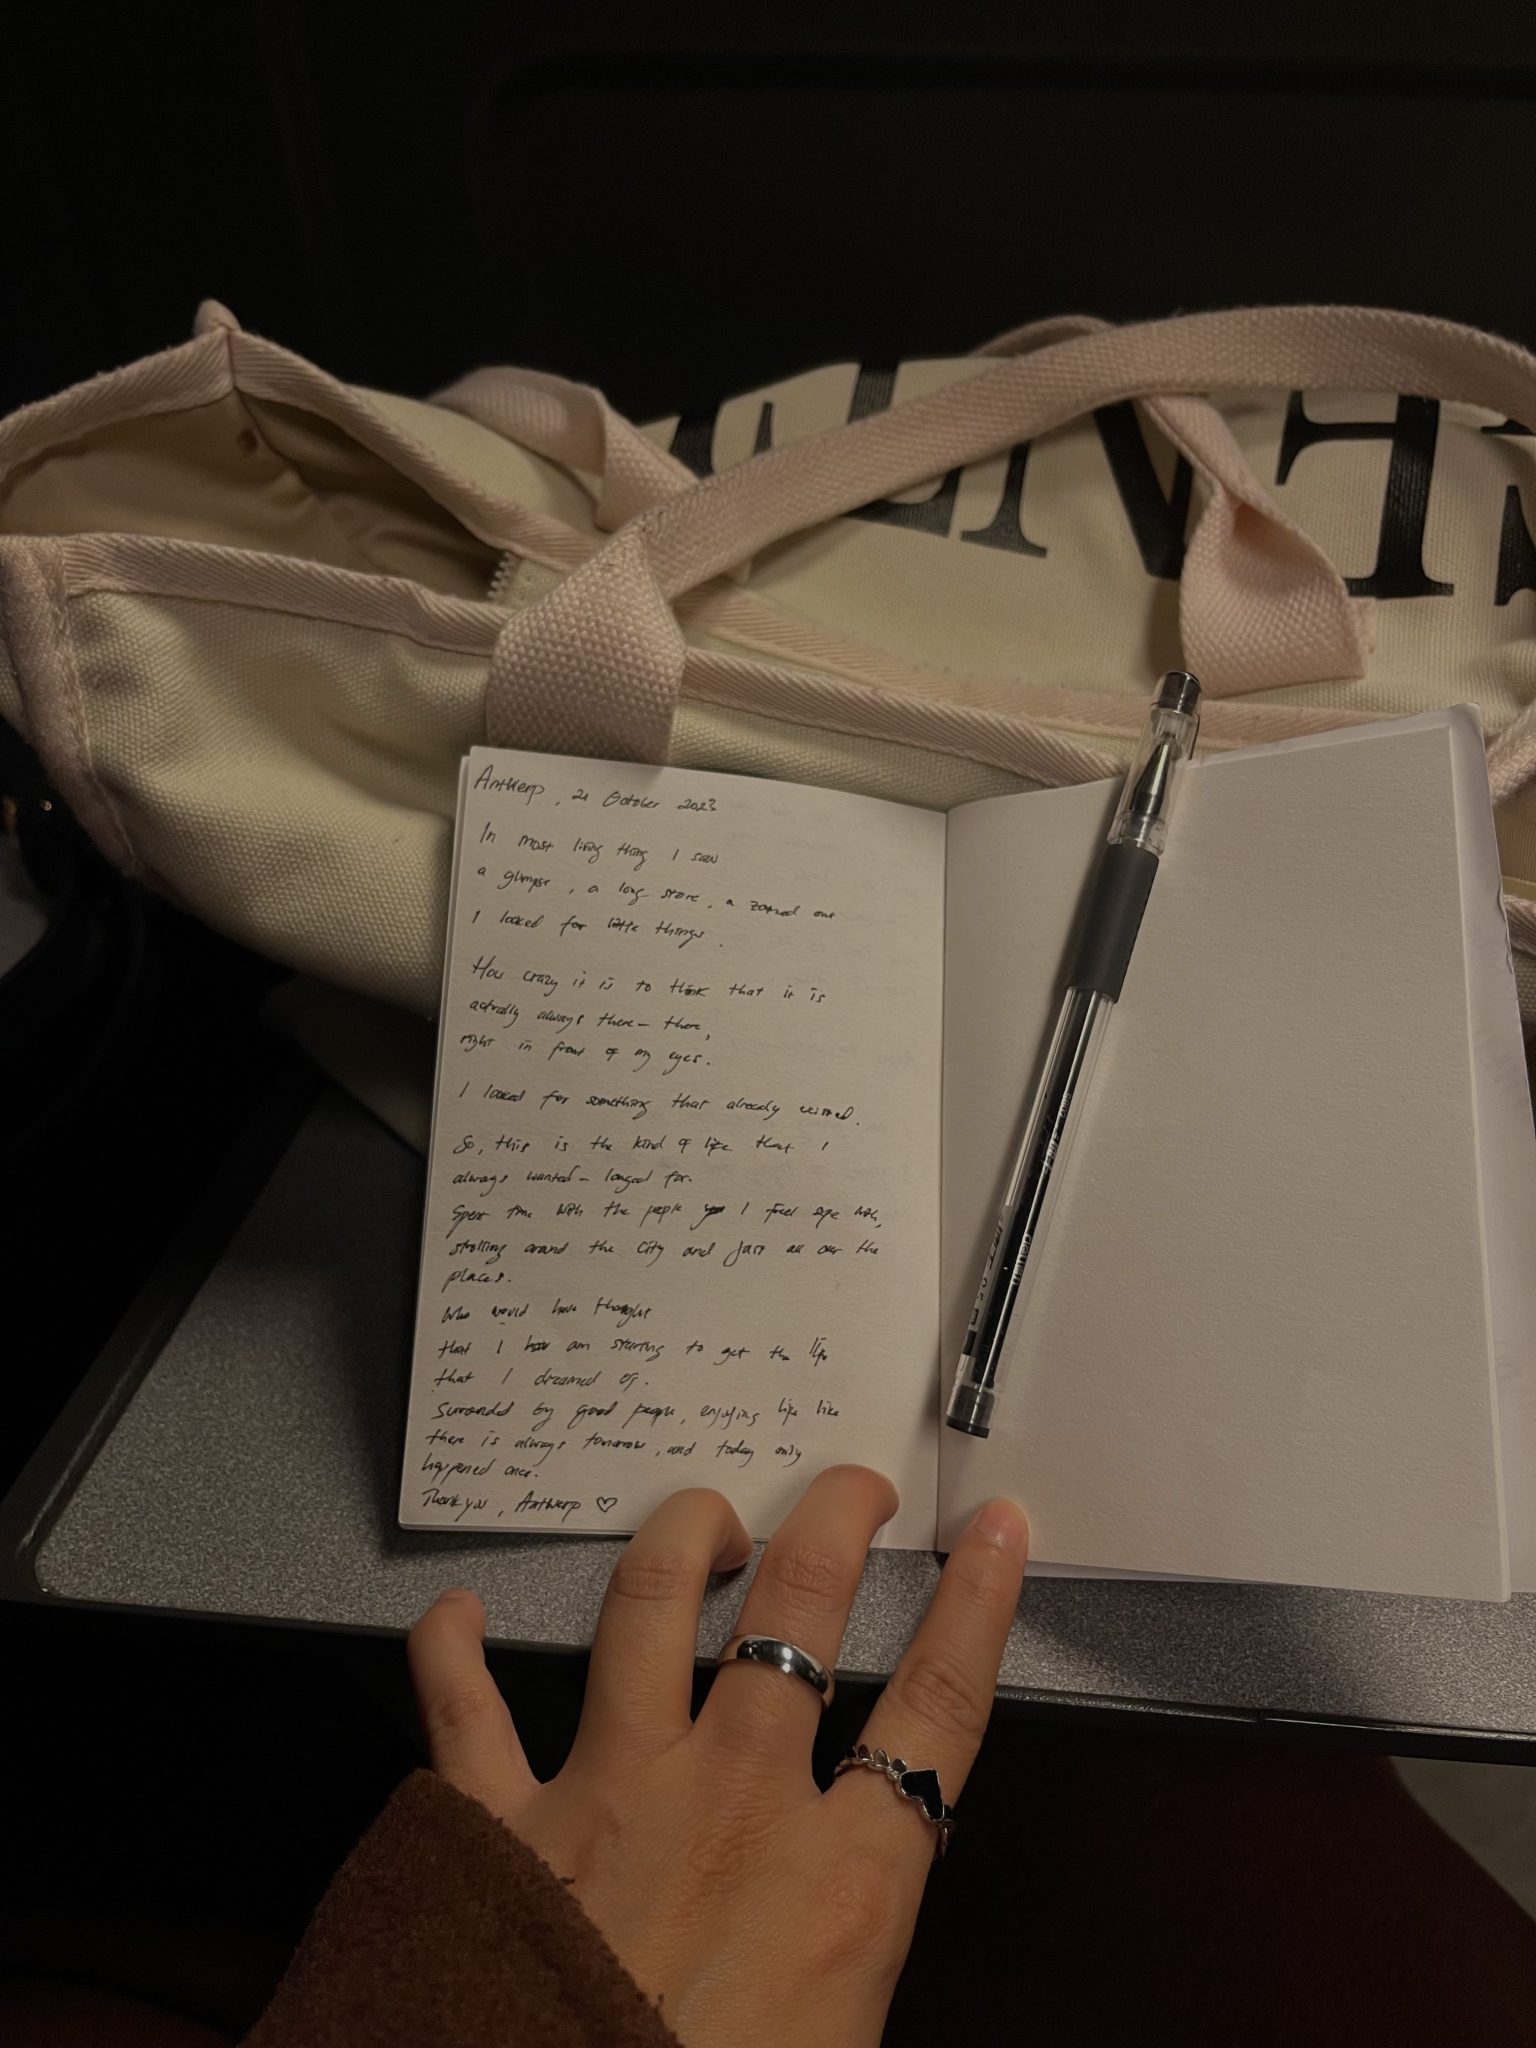 Antwerp, 21 October 2023
In most living thing I saw
a glimpse, a long stare, a zoomed out
I looked for little things.
How crazy it is to think that it is
actually always there – there,
right in front of my eyes.
I looked for something that already existed.
So, this is the kind of life that I
always wanted – longed for.
Spent time with the people I feel safe with,
strolling around the city and just all over the
places.
Who would have thought
that I am starting to get the life
that I dreamed of.
Surrounded by good people, enjoying life like
there is always tomorrow, and today only
happened once.
Thank you, Antwerp ♡